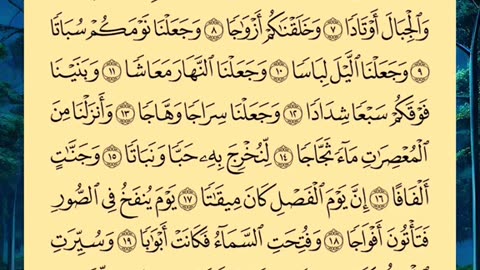 وَٱلْجِبَالَ أَوْتَادًا ٧ وَخَلَقْنَٰكُمْ أَزْوَٰجًا ٨ وَجَعَلْنَا نَوْمَكُمْ سُبَاتًا
٩ وَجَعَلْنَا ٱلَّيْلَ لِبَاسًا ١٠ وَجَعَلْنَا ٱلنَّهَارَ مَعَاشًا ١١ وَبَنَيْنَا
فَوْقَكُمْ سَبْعًا شِدَادًا ١٢ وَجَعَلْنَا سِرَاجًا وَهَّاجًا ١٣ وَأَنزَلْنَا مِنَ
ٱلْمُعْصِرَٰتِ مَآءً ثَجَّاجًا ١٤ لِّنُخْرِجَ بِهِۦ حَبًّا وَنَبَاتًا ١٥ وَجَنَّٰتٍ
أَلْفَافًا ١٦ إِنَّ يَوْمَ ٱلْفَصْلِ كَانَ مِيقَٰتًا ١٧ يَوْمَ يُنفَخُ فِى ٱلصُّورِ
فَتَأْتُونَ أَفْوَاجًا ١٨ وَفُتِحَتِ ٱلسَّمَآءُ فَكَانَتْ أَبْوَٰبًا ١٩ وَسُيِّرَتِ